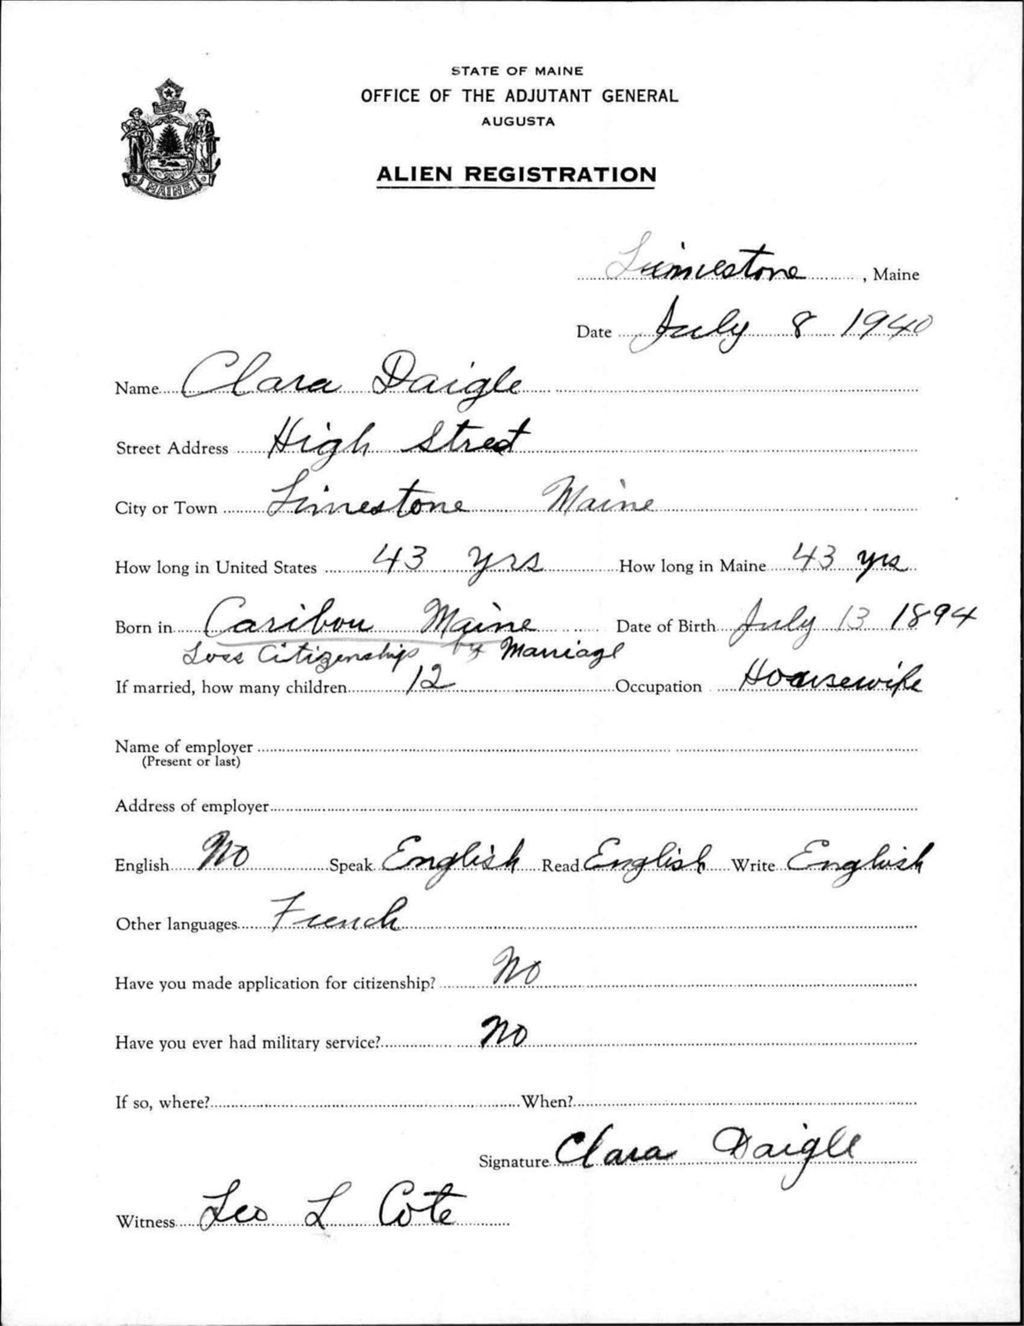 STATE OF MAINE
OFFICE OF THE ADJUTANT GENERAL
AUGUSTA
ALIEN REGISTRATION
MAINE
Limestone, Maine
Date July 8 1940
Name Clara Daigle
Street Address High Street
City or Town Limestone Maine
How long in United States 43 yrs How long in Maine 43 yrs
Born in Caribou Maine Date of Birth July 13 1894
Loss Citizenship by Marriage
If married, how many children 12 Occupation Housewife
Name of employer
(Present or last)
Address of employer
English No Speak English Read English Write English
Other languages French
Have you made application for citizenship? No
Have you ever had military service? No
If so, where? When?
Signature Clara Daigle
Witness Leo L Cote